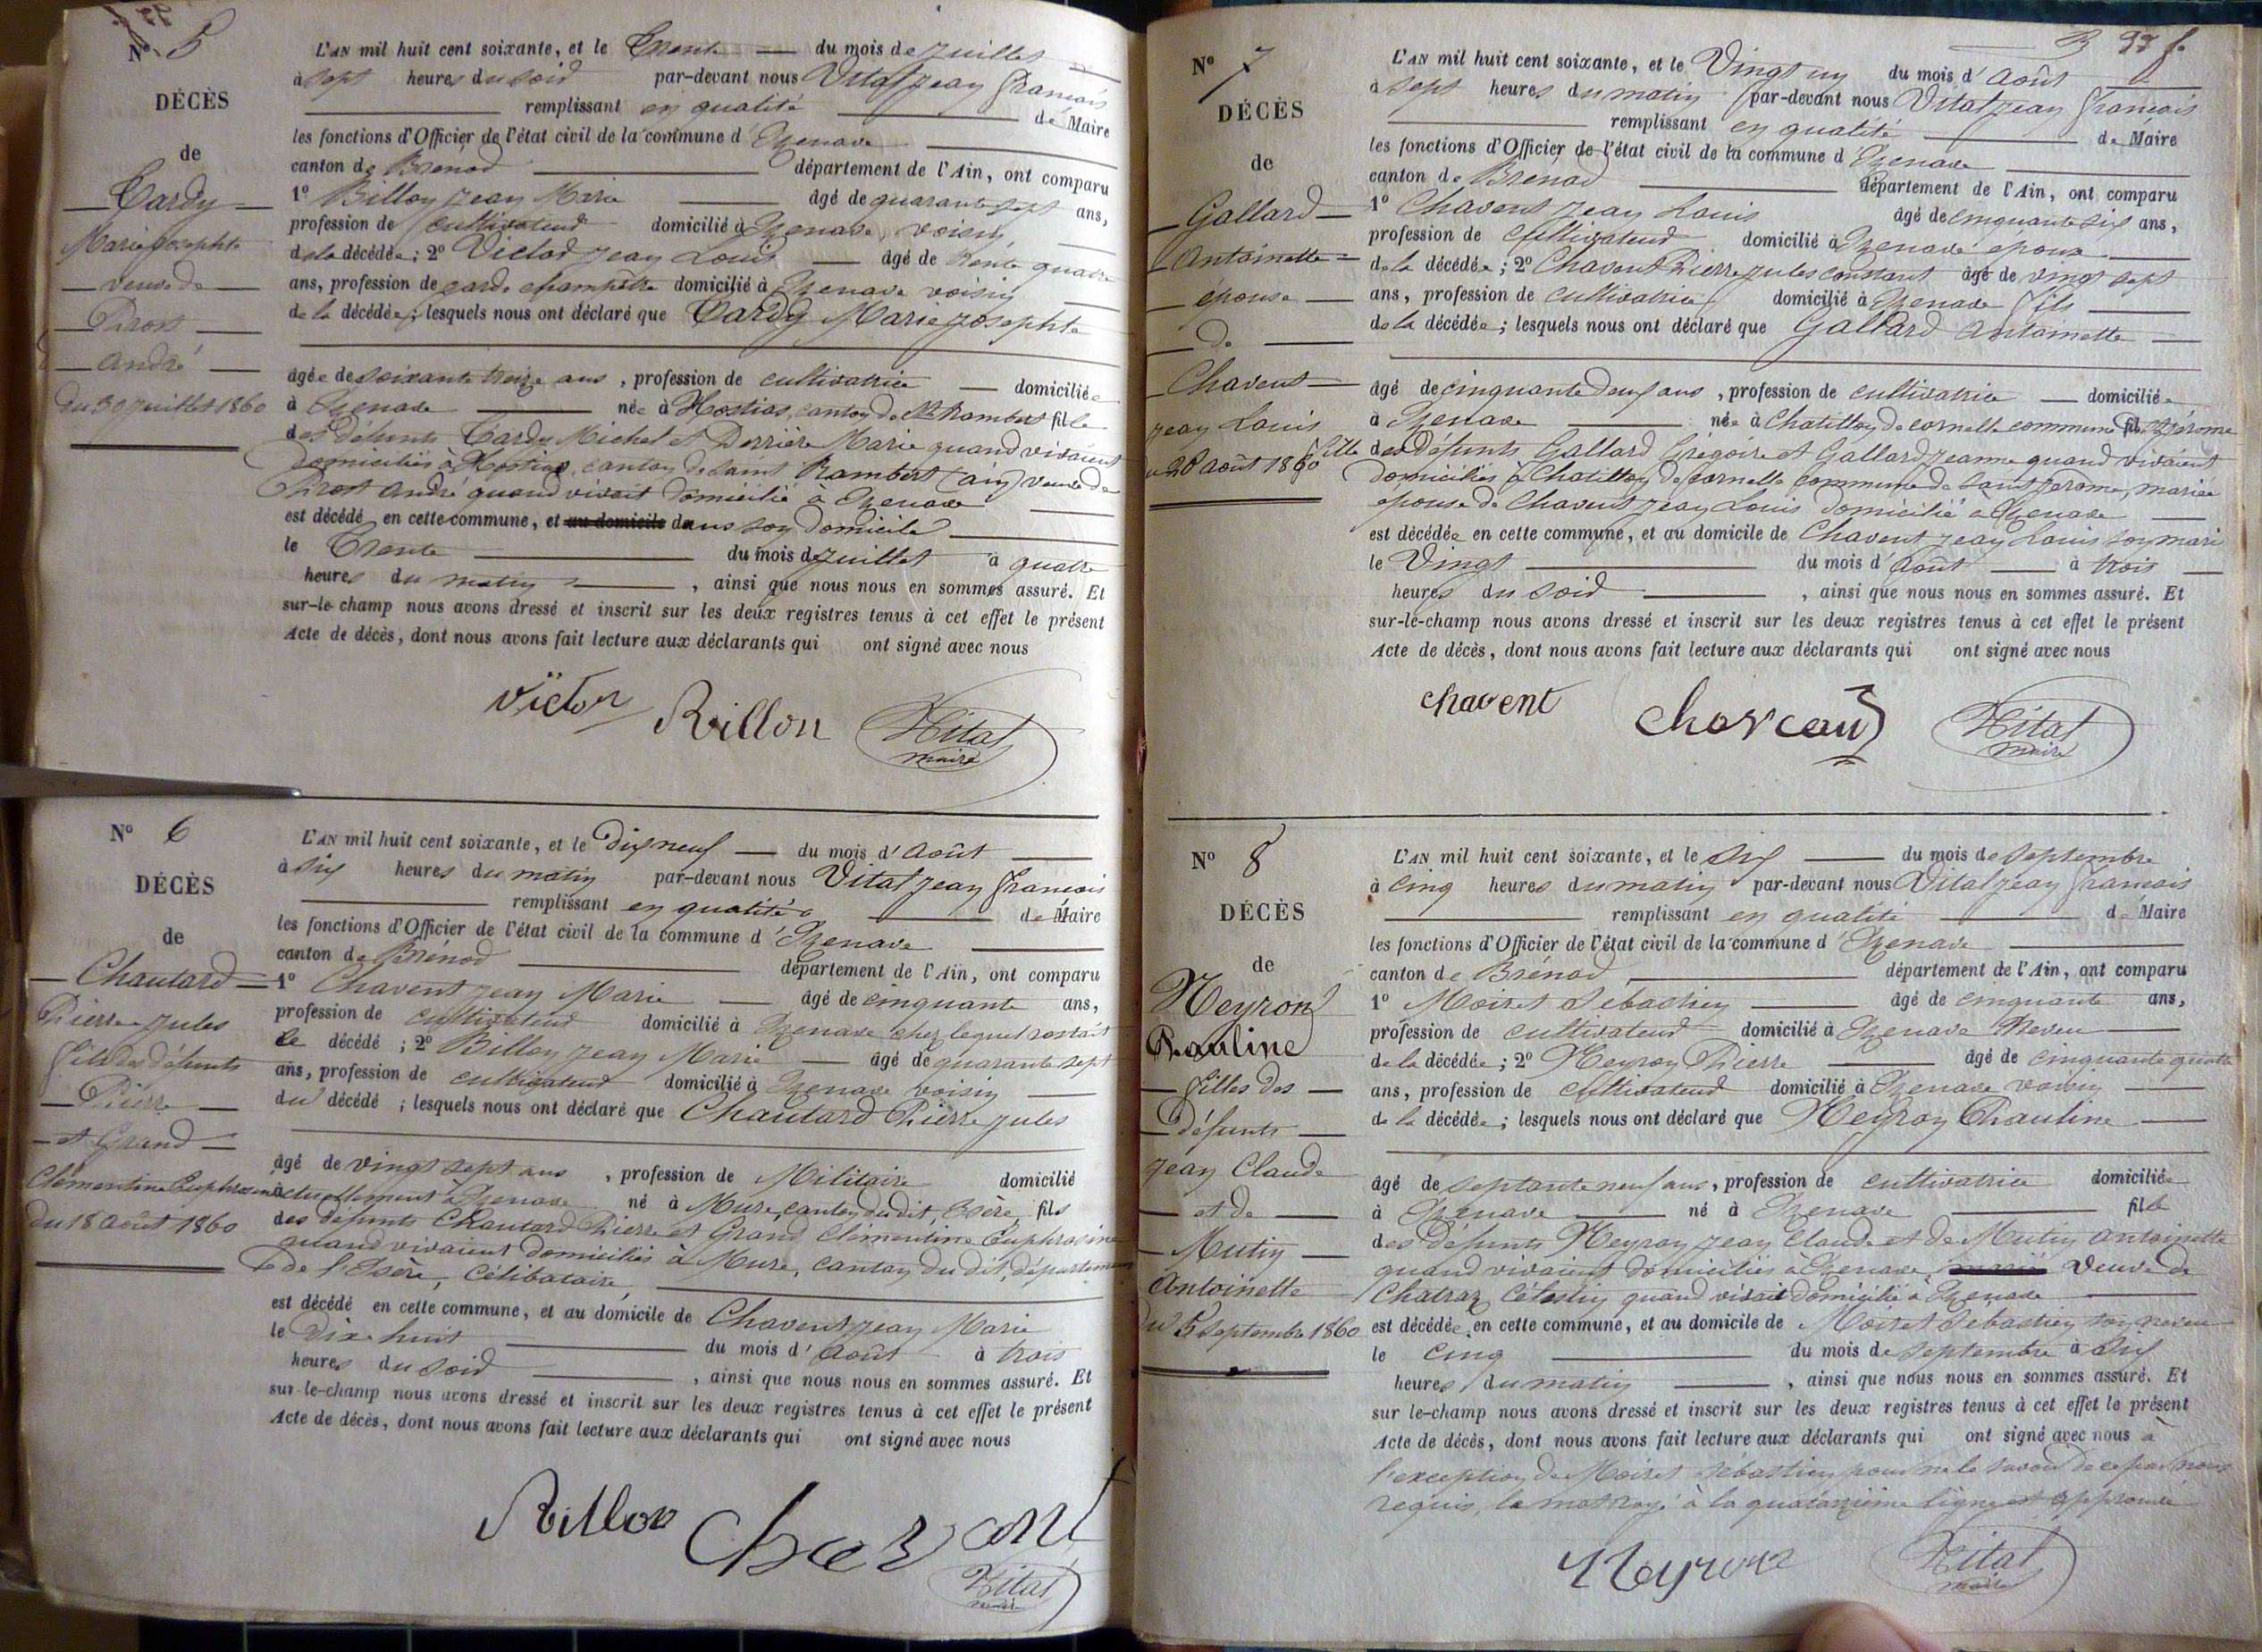 N° 5
DÉCÈS
de
Tardy
Marie Josephte
veuve de
Prost
André
du 30 juillet 1860
L'AN mil huit cent soixante, et le Trente du mois de juillet
à sept heures du soir par-devant nous Vital Jean François
remplissant en qualité de Maire
les fonctions d'Officier de l'état civil de la commune d'Izenave
canton de Brenod département de l'Ain, ont comparu
1° Billon Jean Marie âgé de quarante sept ans,
profession de cultivateur domicilié à Izenave, voisin
de la décédée; 2° Victor Jean Louis âgé de trente quatre
ans, profession de garde champêtre domicilié à Izenave voisin
de la décédée; lesquels nous ont déclaré que Tardy Marie Josephte
âgée de soixante treize ans, profession de cultivatrice domiciliée
à Izenave née à Hostias, canton de St Rambert fille
des défunts Tardy Michel et Derrière Marie quand vivaient
domiciliés à Hostias, canton de Saint Rambert (ain) veuve de
Prost André quand vivait domicilié à Izenave
est décédé en cette commune, et au domicile dans son domicile
le Trente du mois de juillet à quatre
heures du matin, ainsi que nous nous en sommes assuré. Et
sur-le champ nous avons dressé et inscrit sur les deux registres tenus à cet effet le présent
Acte de décès, dont nous avons fait lecture aux déclarants qui ont signé avec nous
Victor Billon Vital
maire
N° 6
DÉCÈS
de
Chautard
Pierre Jules
fils des défunts
Pierre
et Grand
Clémentine Euphrosine
du 18 août 1860
L'AN mil huit cent soixante, et le Dix neuf du mois d'août
à six heures du matin par-devant nous Vital Jean François
remplissant en qualité de Maire
les fonctions d'Officier de l'état civil de la commune d'Izenave
canton de Brénod département de l'Ain, ont comparu
1° Chavent Jean Marie âgé de cinquante ans,
profession de cultivateur domicilié à Izenave chez lequel restait
le décédé; 2° Billon Jean Marie âgé de quarante sept
ans, profession de cultivateur domicilié à Izenave voisin
du décédé; lesquels nous ont déclaré que Chautard Pierre Jules
âgé de vingt sept ans, profession de Militaire domicilié
actuellement à Izenave né à Mure, canton du dit, Isère, fils
des défunts Chautard Pierre et Grand Clémentine Euphrosine
quand vivaient domiciliés à Mure, canton du dit, département
de l'Isère, célibataire,
est décédé en cette commune, et au domicile de Chavent Jean Marie
le dix huit du mois d'août à trois
heures du soir, ainsi que nous nous en sommes assuré. Et
sur-le-champ nous avons dressé et inscrit sur les deux registres tenus à cet effet le présent
Acte de décès, dont nous avons fait lecture aux déclarants qui ont signé avec nous
Billon Chavent
Vital
maire
N° 7
DÉCÈS
de
Gallard
Antoinette
épouse
de
Chavent
Jean Louis
du 20 août 1860
L'AN mil huit cent soixante, et le Vingt un du mois d'août
à sept heures du matin par-devant nous Vital Jean François
remplissant en qualité de Maire
les fonctions d'Officier de l'état civil de la commune d'Izenave
canton de Brenod département de l'Ain, ont comparu
1° Chavent Jean Louis âgé de cinquante six ans,
profession de cultivateur domicilié à Izenave époux
de la décédée; 2° Chavent Pierre Jules Constant âgé de vingt sept
ans, profession de cultivatrice domicilié à Izenave fils
de la décédée; lesquels nous ont déclaré que Gallard Antoinette
âgé de cinquante deux ans, profession de cultivatrice domiciliée
à Izenave née à Chatillon de cornelle commune de St Jérome
fille des défunts Gallard Grégoire et Gallard Jeanne quand vivaient
domiciliés à Chatillon de Cornelle commune de saint Jerome, mariée
épouse de Chavent Jean Louis domicilié à Izenave
est décédée en cette commune, et au domicile de Chavent Jean Louis son mari
le Vingt du mois d'août à trois
heures du soir, ainsi que nous nous en sommes assuré. Et
sur-le-champ nous avons dressé et inscrit sur les deux registres tenus à cet effet le présent
Acte de décès, dont nous avons fait lecture aux déclarants qui ont signé avec nous
chavent Vital
maire
N° 8
DÉCÈS
de
Neyron
Pauline
filles des
défunts
Jean Claude
et de
Mutin
Antoinette
du 5 Septembre 1860
L'AN mil huit cent soixante, et le Six du mois de Septembre
à cinq heures du matin par-devant nous Vital Jean François
remplissant en qualité de Maire
les fonctions d'Officier de l'état civil de la commune d'Izenave
canton de Brénod département de l'Ain, ont comparu
1° Moiret Sebastien âgé de cinquante ans,
profession de cultivateur domicilié à Izenave Neveu
de la décédée; 2° Neyron Pierre âgé de cinquante quatre
ans, profession de cultivateur domicilié à Izenave voisin
de la décédée; lesquels nous ont déclaré que Neyron Pauline
âgé de septante neuf ans, profession de cultivatrice domiciliée
à Izenave né à Izenave fille
des défunts Neyron Jean Claude et de Mutin Antoinette
quand vivaient domiciliés à Izenave, mariée veuve de
Chatraz Célestin quand vivait domicilié à Izenave
est décédée en cette commune, et au domicile de Moiret Sebastien son neveu
le cinq du mois de Septembre à six
heures du matin, ainsi que nous nous en sommes assuré. Et
sur le-champ nous avons dressé et inscrit sur les deux registres tenus à cet effet le présent
Acte de décès, dont nous avons fait lecture aux déclarants qui ont signé avec nous à
l'exception de Moiret Sébastien pour ne le savoir de ce par nous
requis, le mot rayé à la quatorzième ligne est approuvé
Neyron Vital
maire